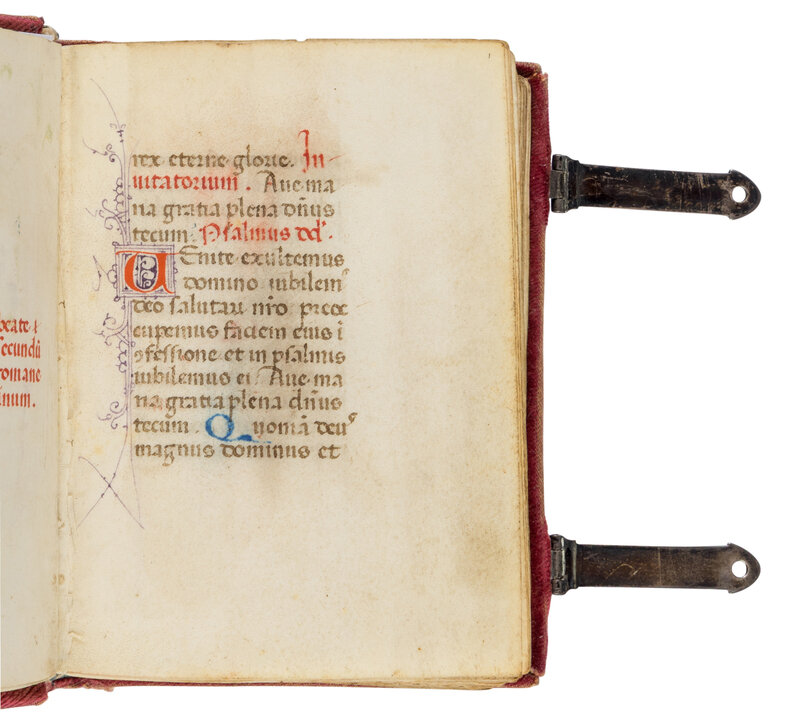 beate ı
secundū
romane
īnum.
rex eterne glorie. In
uitatorium. Aue ma
ria gratia plena dn̄us
tecum. Psalmus dd̓.
UEnite exultemus
domino iubilem᾿
deo salutari nr̄o preoc
cupemus faciem eius ī
ꝯfessione et in psalmis
iubilemus ei. Aue ma
ria gratia plena dn̄us
tecum. Quoniā deu᾿
magnus dominus et